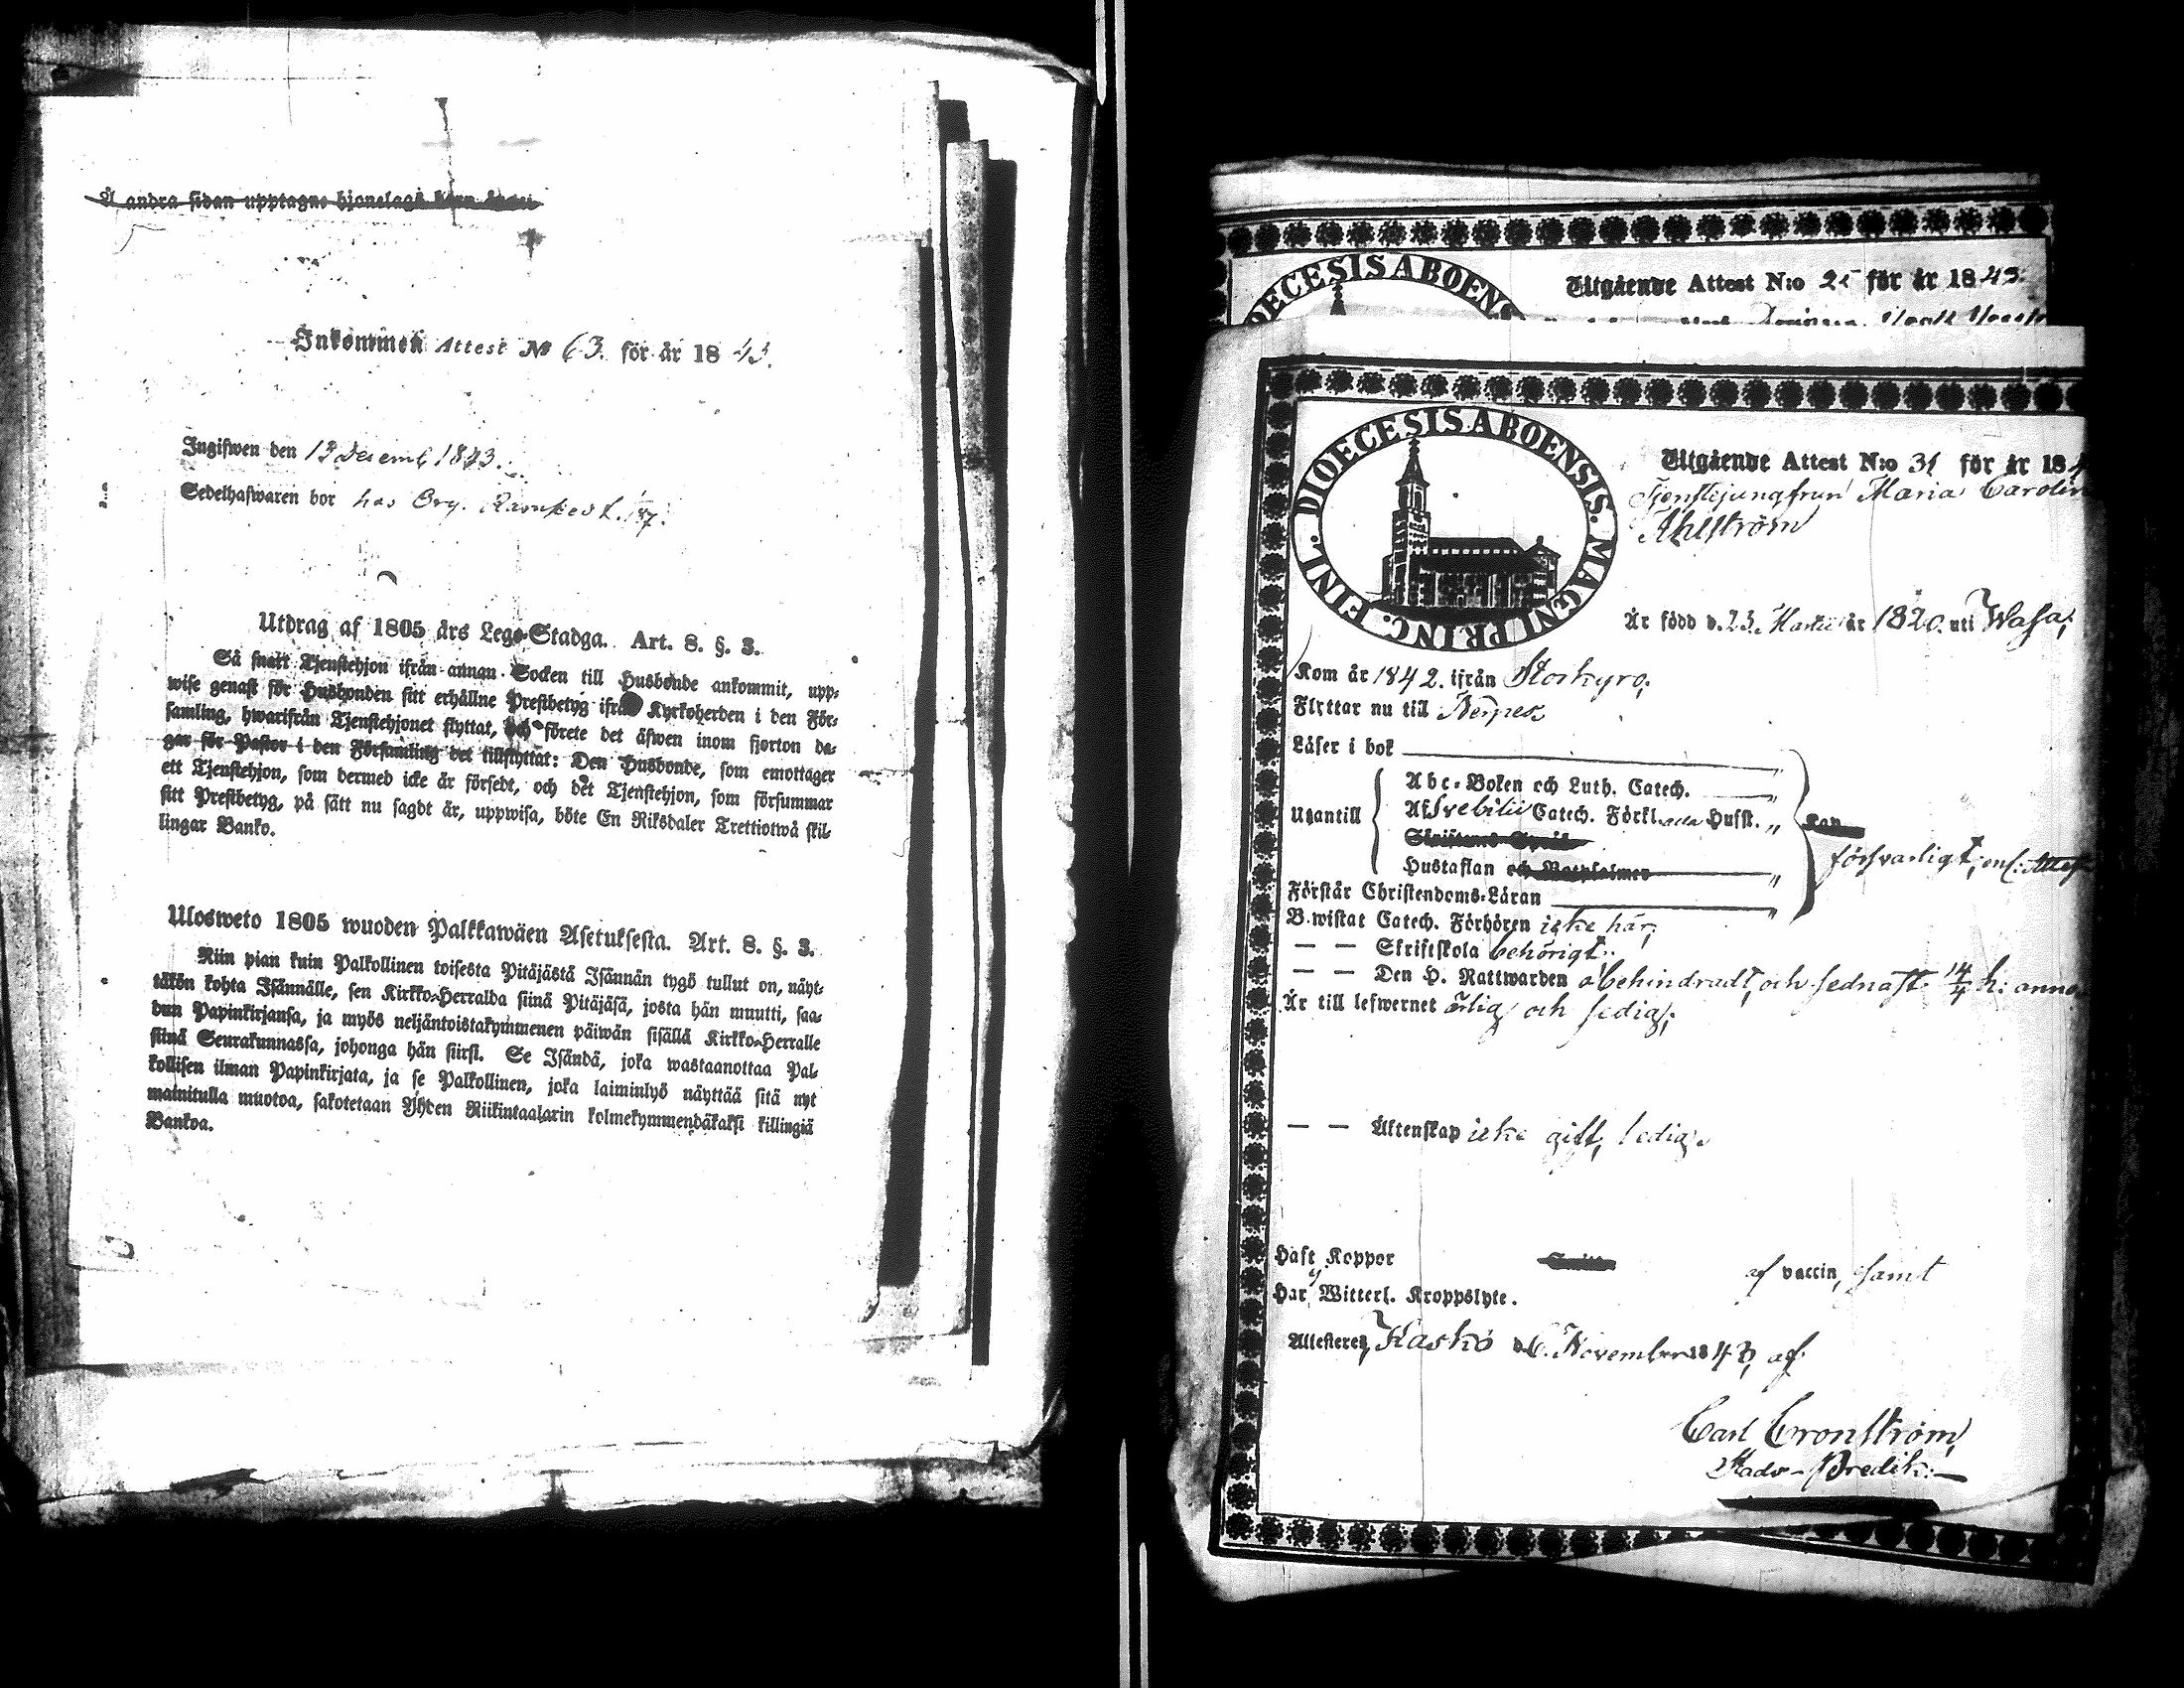 Å andra sidan upptagne hjonelag
Inkommen Attest № 63. för år 1843.
Ingifwen den 13 Decemb 1843.
Sedelhafwaren bor hos
Utdrag af 1805 års Lego-Stadga. Art. 8. §. 3.
Så snart Tjenstehjon ifrån annan Socken till Husbonde ankommit, upp-
wise genast för Husbonden sitt erhållne Prestbetyg ifrån Kyrkoherden i den För-
samling, hwarifrån Tjenstehjonet flyttat, och förete det äfwen inom fjorton da-
gar för Pastor i den Församling det tillflyttat: Den Husbonde, som emottager
ett Tjenstehjon, som dermed icke är försedt, och det Tjenstehjon, som försummar
sitt Prestbetyg, på sätt nu sagdt är, uppwisa, böte En Riksdaler Trettiotwå skil-
lingar Banko.
Ulosweto 1805 wuoden Palkkawäen Asetuksesta. Art. 8. §. 3.
Niin pian kuin Palkollinen toisesta Pitäjästä Isännän tygö tullut on, näyt-
täkön kohta Isännälle, sen Kirkko-Herralda siinä Pitäjäsä, josta hän muutti, saa-
dun Papinkirjansa, ja myös neljäntoistakymmenen päiwän sisällä Kirkko-Herralle
siinä Seurakunnassa, johonga hän siirsi. Se Isändä, joka wastaanottaa Pal-
kollisen ilman Papinkirjata, ja se Palkollinen, joka laiminlyö näyttää sitä nyt
mainitulla muotoa, sakotetaan Yhden Riikintaalarin kolmekymmendäkaksi killingiä
Bankoa.
DIOECESIS ABOENS
Utgående Attest N:o 25 för år 1843.
DIOECESIS ABOENSIS. MAGNI PRINC. FINL.
Utgående Attest N:o 31 för år 184
Tjenstejungfrun Maria Carolin
Ahlström
Är född d. 23. Martii år 1820. uti Wasa;
Kom år 1842. ifrån Storkyro;
Flyttar nu till Nerpes
Läser i bok
Abc-Boken och Luth. Catech.
Utantill
Af Svebilii Catech. Förkl. Husst.
Kan
Skriftens Språk
försvarligt, enl. Attest
Hustaflan och Botpsalmer
Förstår Christendoms-Läran
B.wistat Catech. Förhören icke här;
— — Skriftskola behörigt;
— — Den H. Nattwarden obehindradt, och sednast 14/4 h: anno
Är till lefwernet ärlig och sedig;
— — Äktenskap icke gift, ledig.
Haft Koppor af vaccin, samt
Har ej Witterl. Kroppslyte.
Attesteret, Kaskö d. 6. November 1843, af
Carl Cronström,
Stads-Predik: